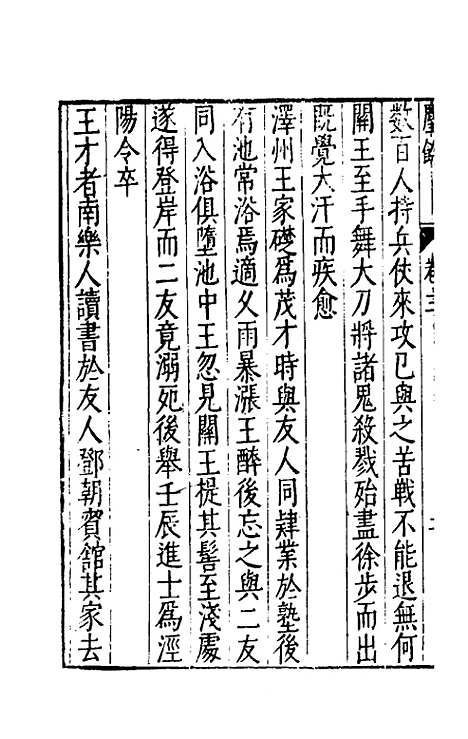 數百人持兵仗來攻已與之苦戰不能退無何
關王至手舞大刀將諸鬼殺戮殆盡徐步而出
既覺大汗而疾愈
澤州王家礎爲茂才時與友人同肄業於塾後
有池常浴焉適久雨暴漲王醉後忘之與二友
同入浴俱墮池中王忽見關王提其髻至淺處
遂得登岸而二友竟溺死後舉壬辰進士爲涇
陽令卒
王才者南樂人讀書於友人鄧朝賓舘其家去